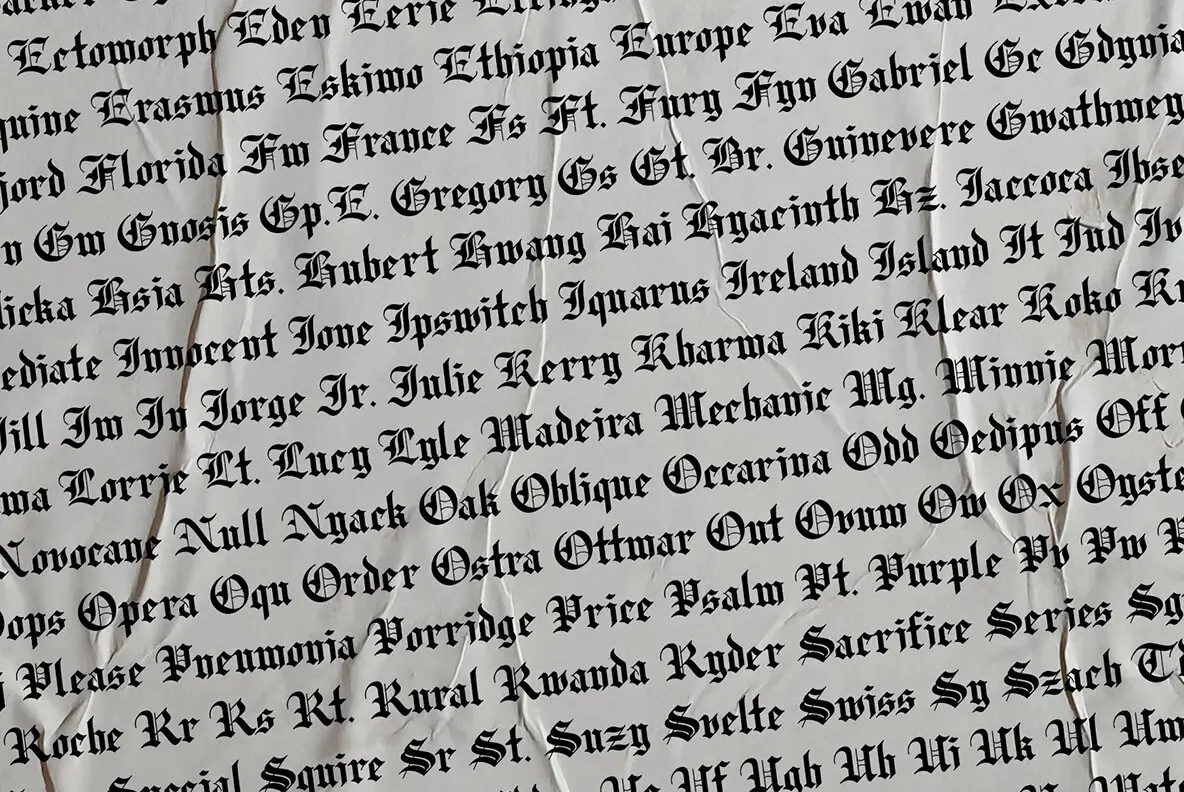 Ectomorph Eden Eerie
quine Erasmus Eskimo Ethiopia Europe Eva Ewan
jord Florida Fm France Fs Ft. Fury Fyn Gabriel Gc Gdynia
n Gm Gnosis Gp.E. Gregory Gs Gt. Br. Guinevere Gwathmey
licka Hsia Hts. Hubert Hwang Hai Hyacinth Hz. Iaccoca Ibse
ediate Innocent Ione Ipswitch Iquarus Ireland Island It Iud Iv
Jill Jm Jn Jorge Jr. Julie Kerry Kharma Kiki Klear Koko Kr
ma Lorrie Lt. Lucy Lyle Madeira Mechanic Mg. Minnie Morr
Novocane Null Nyack Oak Oblique Occarina Odd Oedipus Off
Oops Opera Oqu Order Ostra Ottmar Out Ovum Ow Ox Oyste
Please Pneumonia Porridge Price Psalm Pt. Purple Pv Pw
Roche Rr Rs Rt. Rural Rwanda Ryder Sacrifice Series
Special Squire Sr St. Suzy Svelte Swiss Sy Szach
Uf Ugh Uh Ui Uk Ul Um